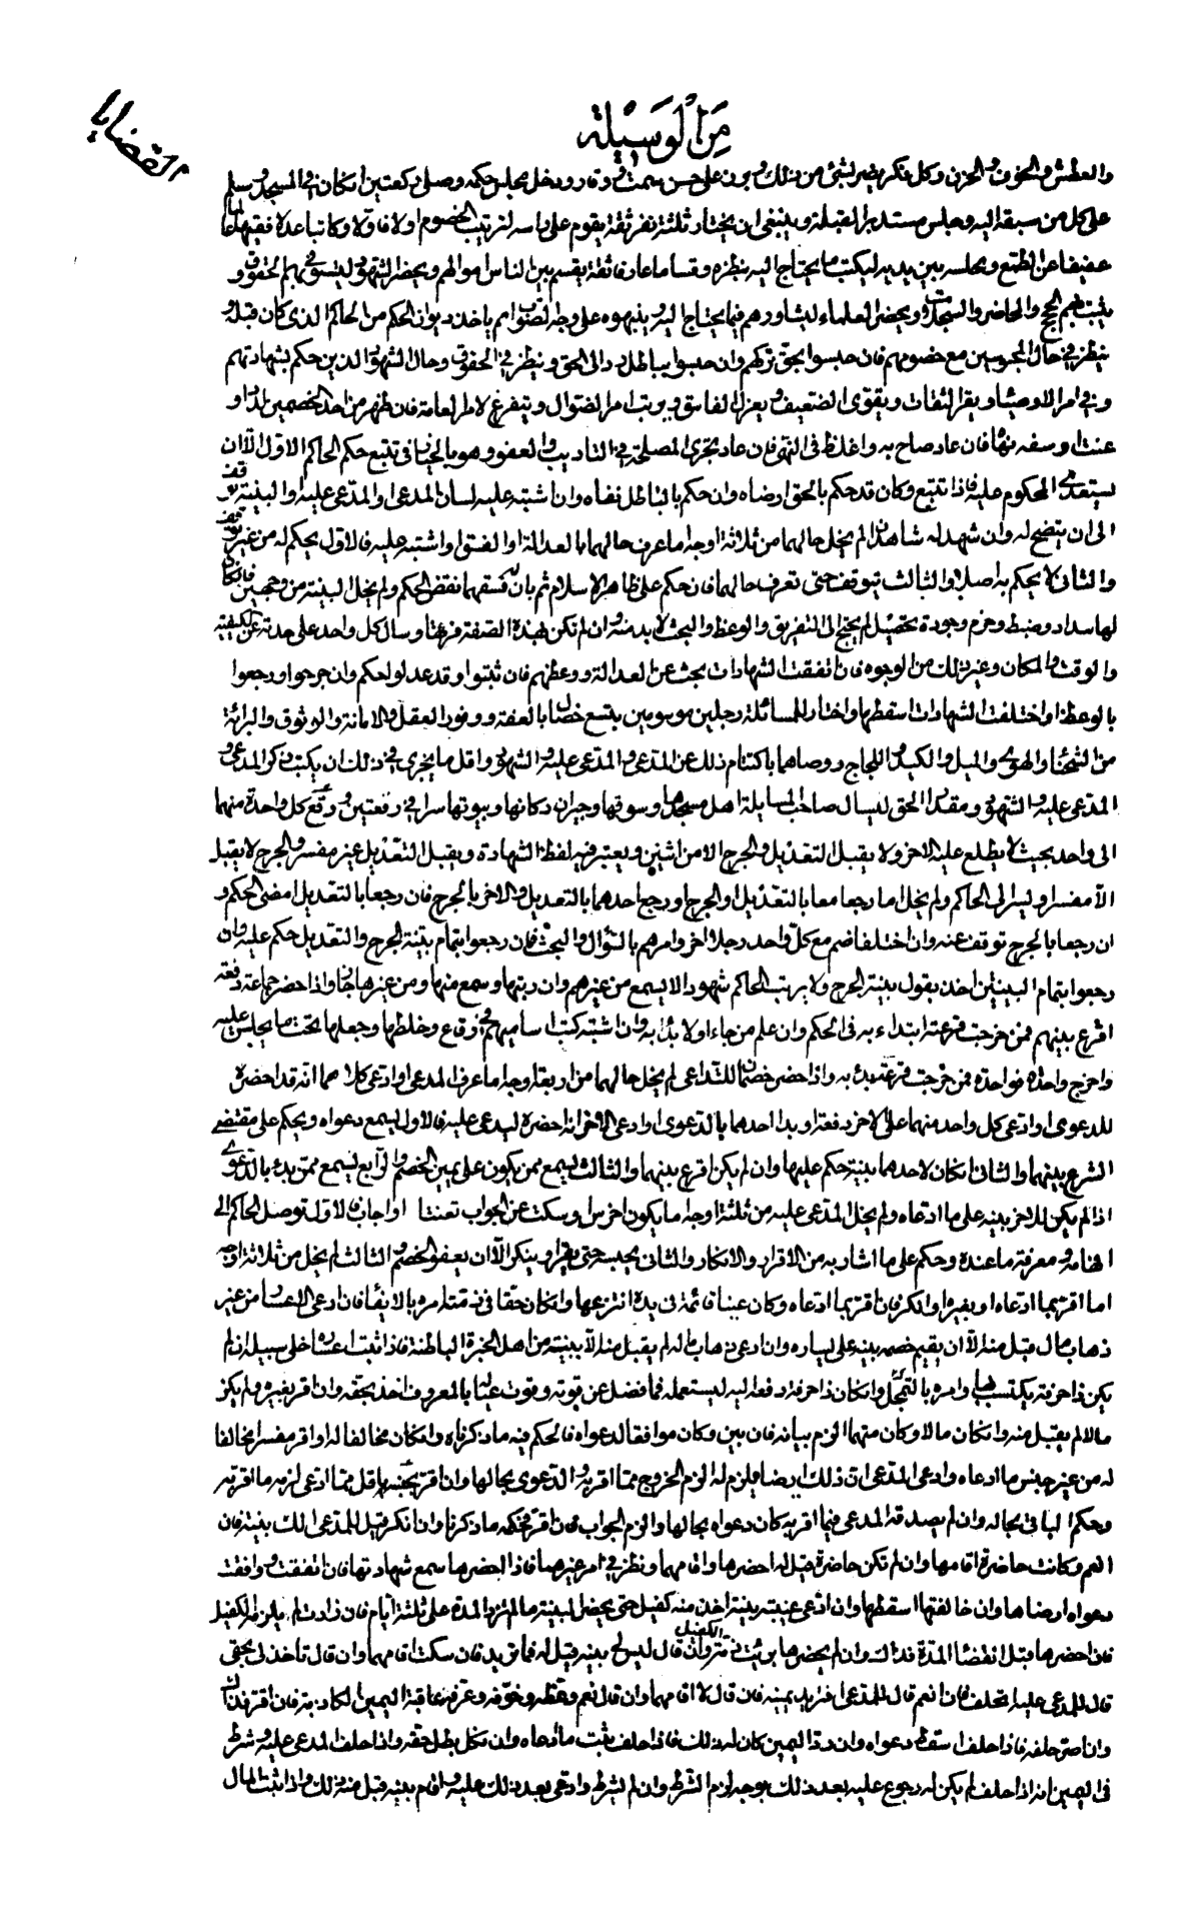 القضايا
مِنَ الْوَسِيْلة
والعطش والخوف والحزن وكل فكر يضر لشئ من ذلك ويكون على حسن سمت ووقار ودخل مجلس حكمه وصلى ركعتين ان كان في المسجد وسلم
على كل من سبقه اليه وجلس مستدبر القبلة وينبغي ان يختار ثلثة نفر ثقة يقوم على راسه لترتيب الخصوم اولا فاولا وكاتبا عدلا فقيها عاقلا
عفيفا عن الطمع ويجلسه بين يديه ليكتب ما يحتاج اليه بنظره وقساما عارفا ثقة يقسم بين الناس اموالهم ويحضر الشهود ليستوفي بهم الحقوق و
يثبت بهم الحجج والمحاضر والسجلات ويحضر العلماء ليشاورهم فيما يحتاج اليه وينبهوه على وجه الصواب ثم ياخذ ديوان الحكم من الحاكم الذى كان قبله و
ينظر في حال المحبوسين مع خصومهم فان حبسوا بحق تركهم وان حبسوا بباطل رد الى الحق وينظر في الحقوق وحال الشهود الذين حكم بشهادتهم
وفي امر الاوصياء ويقر الثقات ويقوى الضعيف ويعزل الفاسق ويرتب امر الضوال ويتفرغ لامر العامة فان ظهر من احد الخصمين لدد او
عنت او سفه نهاه فان عاد صاح به واغلظ فى النهى فان عاد تحرى المصلحة في التاديب والعفو وهو بالخيار فى تتبع حكم الحاكم الاول الا ان
يستعدى المحكوم عليه فاذا تتبع وكان قد حكم بالحق ارضاه وان حكم بالباطل نفاه وان اشتبه عليه لسان المدعى او المدعى عليه او البينة توقف
الى ان يتضح له وان شهد له شاهدان لم يخل حالهما من ثلاثة اوجه اما عرف حالهما بالعدالة او الفسق او اشتبه عليه فالاول يحكم له من غير توقف
والثانى لا يحكم به اصلا والثالث يتوقف حتى تعرف حالهما فان حكم على ظاهر الاسلام ثم بان له فسقهما نقض الحكم ولم يخل البينة من وجهين فان كان
لها سداد وضبط وحزم وجودة تحصيل لم يحتج الى التفريق والوعظ والبحث لا بد منه وان لم تكن بهذه الصفة فرقها وسال كل واحد على حدته عن الكيفية
والوقت والمكان وغير ذلك من الوجوه فان اتفقت الشهادات بحث عن العدالة ووعظهم فان ثبتوا وقد عدلوا حكم وان جرحوا ورجعوا
بالوعظ او اختلفت الشهادات اسقطها واختار للمسائلة رجلين موسومين بتسع خصال بالعفة ووفور العقل والامانة والوثوق والبرائة
من الشحناء والهوى والميل والكيد واللجاج ووصاهما باكتتام ذلك عن المدعى والمدعى عليه والشهود واقل ما يجزى في ذلك ان يكتب ذكر المدعى و
المدعى عليه والشهود ومقدار الحق لليسال صاحب المسايلة اهل مسجدها وسوقها وجيران دكانها وبيوتها سرا في رقعتين ودفع كل واحدة منهما
الى واحد بحيث لا يطلع عليه الاخر ولا يقبل التعديل والجرح الا من اثنين ويعتبر فيه لفظ الشهادة ويقبل التعديل غير مفسر والجرح لا يقبل
الا مفسرا وليسر الى الحاكم ولم يخل اما رجعا معا بالتعديل او الجرح او رجع احدهما بالتعديل والاخر بالجرح فان رجعا بالتعديل امضى الحكم و
ان رجعا بالجرح توقف عنه وان اختلفا ضم مع كل واحد رجلا اخر وامرهم بالسؤال والبحث فان رجعوا بتمام بينة الجرح والتعديل حكم عليه وان
رجعوا بتمام البينتين اخذ بقول بينة الجرح ولا يرتب الحاكم شهودا لا يسمع من غيرهم وان رتبها وسمع منها ومن غيرها جاز واذا حضر جماعة دفعة
اقرع بينهم فمن خرجت قرعته ابتداء به فى الحكم وان علم من جاء اولا بدأ به وان اشتبه كتب اساميهم في رقاع وخلطها وجعلها تحت ما يجلس عليه
واخرج واحدة فواحدة فمن خرجت قرعته بدء به واذا حضر خصمان للتداعى لم يخل حالهما من اربعة اوجه اما عرف المدعى او ادعى كلاهما انه قد احضره
للدعوى او ادعى كل واحد منهما على الاخر دفعة او بدا احدهما بالدعوى او ادعى الاخر انه احضره ليدعى عليه فالاول ليسمع دعواه ويحكم على مقتضى
الشرع بينهما والثانى ان كان لاحدهما بينة حكم عليها وان لم يكن اقرع بينهما والثالث يسمع ممن يكون على يمين الخصم والرابع يسمع ممن بدء بالدعوى
اذا لم يكن للاخر بينه على ما ادعاه ولم يخل المدعى عليه من ثلثة اوجه اما يكون اخرس او سكت عن الجواب تعنتا او اجاب فالاول توصل الحاكم الى
افهامه ومعرفة ما عنده وحكم على ما اشار به من الاقرار والانكار والثانى يحبسه حتى يقر او ينكر الا ان يعفو الخصم والثالث لم يخل من ثلاثة اوجه
اما اقر بما ادعاه او بغيره او انكر فان اقر بما ادعاه وكان عينا قائمة فى يده انتزعها وان كان حقا فى ذمته امره بالايفاء فان ادعى الاعسار من غير
ذهاب مال قبل منه الا ان يقيم خصمه بينه على يساره وان ادعى ذهاب ماله لم يقبل منه الا ببينة من اهل الخبرة الباطنة فاذا ثبت اعساره خلى سبيله ان لم
يكن ذا حرفة يكتسب بها وامره بالتمحل وان كان ذا حرفة دفعه اليه ليستعمله فما فضل عن قوته وقوت عياله بالمعروف اخذ بحقه وان اقر بغيره ولم يكن
مالا لم يقبل منه وان كان مالا وكان متهما الزم بيانه فان بين وكان موافقا لدعواه فالحكم فيه ما ذكرناه وان كان مخالفا له او اقر مفسرا مخالفا
له من غير جنس ما ادعاه وادعى المدعى ان ذلك ايضا يلزم له الزم الخروج مما اقر به والدعوى بحالها وان اقر بجنسه باقل مما ادعى لزمه ما اقر به
وحكم الباقى بحاله وان لم يصدقه المدعى فيما اقر به كان دعواه بحالها والزم الجواب فان اقر فحكمه ما ذكرنا وان انكر قيل للمدعى الك بينة فان
انعم وكانت حاضرة اقامها وان لم تكن حاضرة قيل له احضرها واقامهما ونظر في امر غيرها فاذا احضرها سمع شهادتها فان اتفقت ووافقت
دعواه ارضاها وان خالفتها اسقطها وان ادعى غيبة بينة اخذ منه كفيل حتى يحضر البينة ما لم تزد المدة على ثلثة ايام فان زادت لم يلزمه الكفيل
فان احضرها قبل انقضاء المدة فذاك وان لم يحضرها برئت ذمة الكفيل وان قال ليس لى بينه قيل له فما تريد فان سكت اقامهما وان قال تاخذ لى بحقى
قال للمدعى عليه اتحلف فان انعم قال للمدعى افتريد يمينه فان قال لا اقامهما وان قال نعم وعظه وخوفه وعرفه عاقبة اليمين الكاذبة فان اقر فذاك
وان اصر حلفه فاذا حلف اسقط دعواه وان رد اليمين كان له ذلك فاذا حلف ثبت ما ادعاه وان نكل بطل حقه واذا حلف المدعى عليه وشرط
فى اليمين انه اذا حلف لم يكن له رجوع عليه بعد ذلك بوجه لزم الشرط وان لم يشرط وادعى بعد ذلك عليه واقام بينه قبل منه ذلك واذا ثبت المال